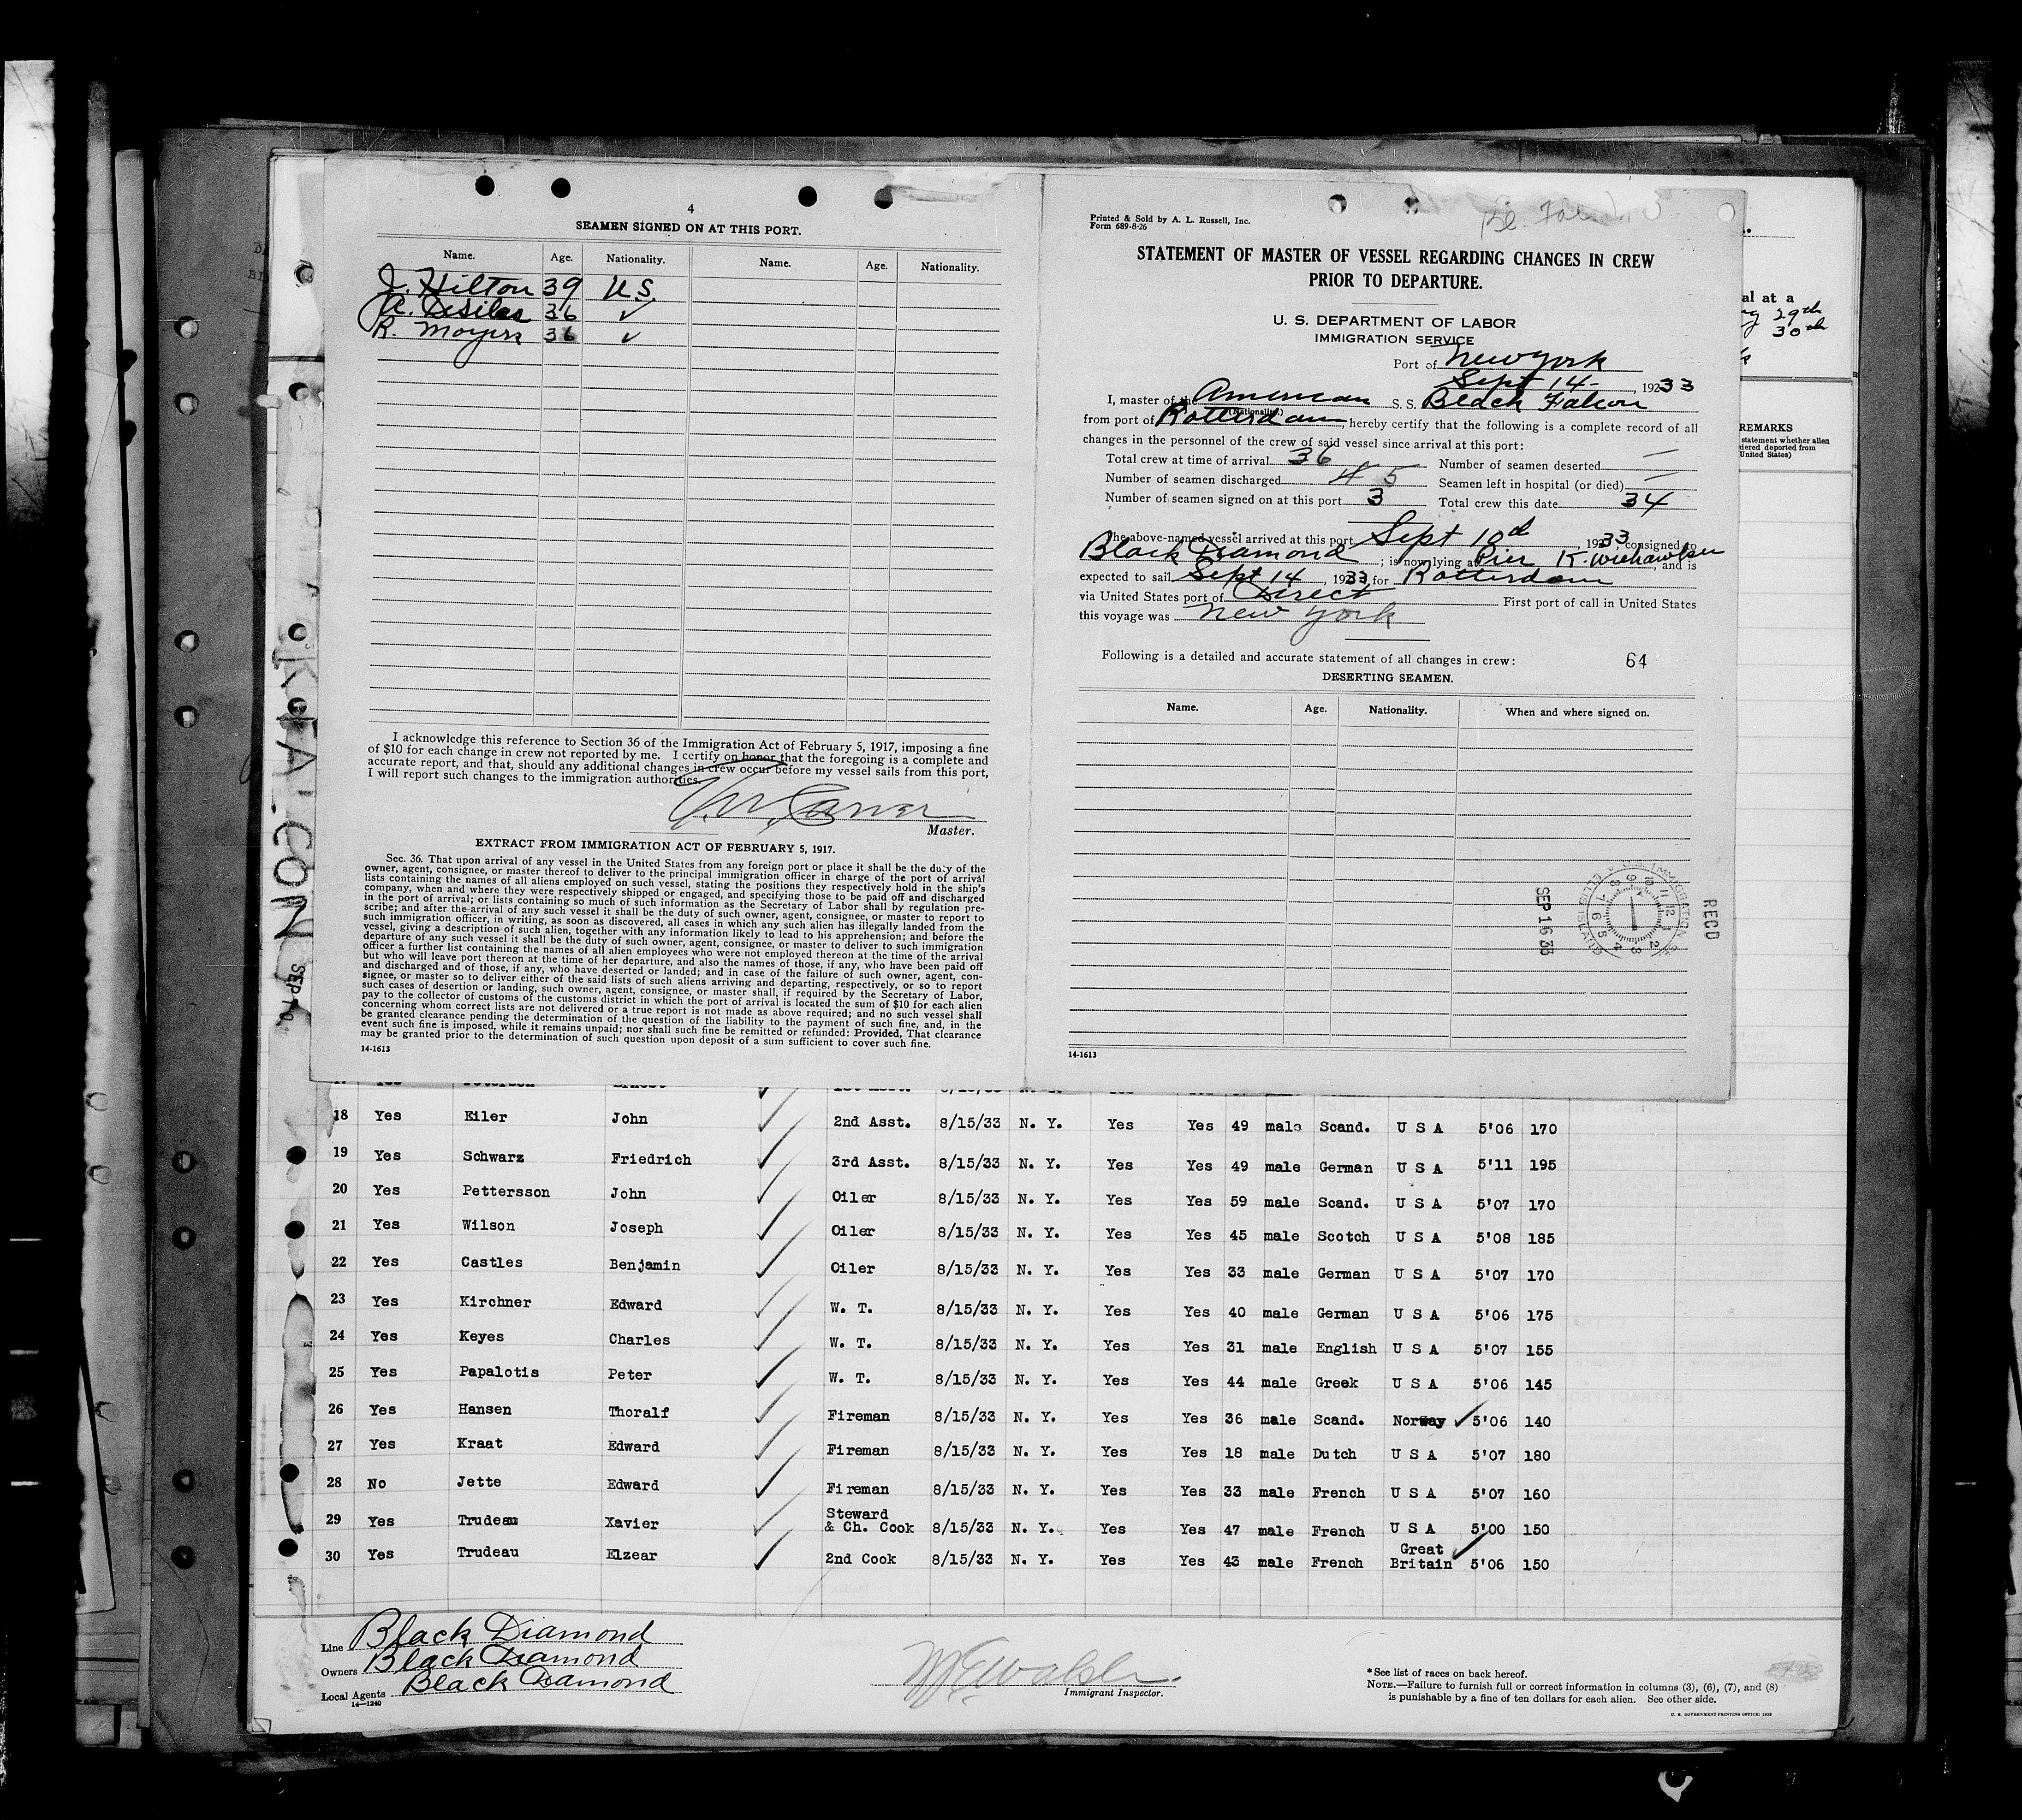 4
SEAMEN SIGNED ON AT THIS PORT.
Name. Age. Nationality. Name. Age. Nationality.
J. Hilton 39 U.S.
A. 36 ✓
R. Moyers 36 ✓
I acknowledge this reference to Section 36 of the Immigration Act of February 5, 1917, imposing a fine
of $10 for each change in crew not reported by me. I certify on honor that the foregoing is a complete and
accurate report, and that, should any additional changes in crew occur before my vessel sails from this port,
I will report such changes to the immigration authorities.
Master.
EXTRACT FROM IMMIGRATION ACT OF FEBRUARY 5, 1917.
Sec. 36. That upon arrival of any vessel in the United States from any foreign port or place it shall be the duty of the
owner, agent, consignee, or master thereof to deliver to the principal immigration officer in charge of the port of arrival
lists containing the names of all aliens employed on such vessel, stating the positions they respectively hold in the ship's
company, when and where they were respectively shipped or engaged, and specifying those to be paid off and discharged
in the port of arrival; or lists containing so much of such information as the Secretary of Labor shall by regulation pre-
scribe; and after the arrival of any such vessel it shall be the duty of such owner, agent, consignee, or master to report to
such immigration officer, in writing, as soon as discovered, all cases in which any such alien has illegally landed from the
vessel, giving a description of such alien, together with any information likely to lead to his apprehension; and before the
departure of any such vessel it shall be the duty of such owner, agent, consignee, or master to deliver to such immigration
officer a further list containing the names of all alien employees who were not employed thereon at the time of the arrival
but who will leave port thereon at the time of her departure, and also the names of those, if any, who have been paid off
and discharged and of those, if any, who have deserted or landed; and in case of the failure of such owner, agent, con-
signee, or master so to deliver either of the said lists of such aliens arriving and departing, respectively, or so to report
such cases of desertion or landing, such owner, agent, consignee, or master shall, if required by the Secretary of Labor,
pay to the collector of customs of the customs district in which the port of arrival is located the sum of $10 for each alien
concerning whom correct lists are not delivered or a true report is not made as above required; and no such vessel shall
be granted clearance pending the determination of the question of the liability to the payment of such fine, and, in the
event such fine is imposed, while it remains unpaid; nor shall such fine be remitted or refunded: Provided, That clearance
may be granted prior to the determination of such question upon deposit of a sum sufficient to cover such fine.
14-1613
Printed & Sold by A. L. Russell, Inc.
Form 689-8-26
STATEMENT OF MASTER OF VESSEL REGARDING CHANGES IN CREW
PRIOR TO DEPARTURE.
U. S. DEPARTMENT OF LABOR
IMMIGRATION SERVICE
Port of New York
Sept 14-, 1933
I, master of the American S. S. Black Falcon
(Nationality.)
from port of Rotterdam, hereby certify that the following is a complete record of all
changes in the personnel of the crew of said vessel since arrival at this port:
Total crew at time of arrival 36 Number of seamen deserted —
Number of seamen discharged 5 Seamen left in hospital (or died) —
Number of seamen signed on at this port 3 Total crew this date 34
The above-named vessel arrived at this port Sept 10d, 1933, consigned to
Black Diamond; is now lying at Pier K. Weehawken, and is
expected to sail Sept 14, 1933, for Rotterdam
via United States port of Direct First port of call in United States
this voyage was New York
Following is a detailed and accurate statement of all changes in crew: 64
DESERTING SEAMEN.
Name. Age. Nationality. When and where signed on.
RECD
SEP 16 33
14-1613
al at a
29th
30th
REMARKS
statement whether alien
dered deported from
United States)
K FALCON SEP 10
18 Yes Eiler John 2nd Asst. 8/15/33 N. Y. Yes Yes 49 male Scand. U S A 5'06 170
19 Yes Schwarz Friedrich 3rd Asst. 8/15/33 N. Y. Yes Yes 49 male German U S A 5'11 195
20 Yes Pettersson John Oiler 8/15/33 N. Y. Yes Yes 59 male Scand. U S A 5'07 170
21 Yes Wilson Joseph Oiler 8/15/33 N. Y. Yes Yes 45 male Scotch U S A 5'08 185
22 Yes Castles Benjamin Oiler 8/15/33 N. Y. Yes Yes 33 male German U S A 5'07 170
23 Yes Kirchner Edward W. T. 8/15/33 N. Y. Yes Yes 40 male German U S A 5'06 175
24 Yes Keyes Charles W. T. 8/15/33 N. Y. Yes Yes 31 male English U S A 5'07 155
25 Yes Papalotis Peter W. T. 8/15/33 N. Y. Yes Yes 44 male Greek U S A 5'06 145
26 Yes Hansen Thoralf Fireman 8/15/33 N. Y. Yes Yes 36 male Scand. Norway 5'06 140
27 Yes Kraat Edward Fireman 8/15/33 N. Y. Yes Yes 18 male Dutch U S A 5'07 180
28 No Jette Edward Fireman 8/15/33 N. Y. Yes Yes 33 male French U S A 5'07 160
29 Yes Trudeau Xavier Steward & Ch. Cook 8/15/33 N. Y. Yes Yes 47 male French U S A 5'00 150
30 Yes Trudeau Elzear 2nd Cook 8/15/33 N. Y. Yes Yes 43 male French Great Britain 5'06 150
Line Black Diamond
Owners Black Diamond
Local Agents Black Diamond
14—1240
Immigrant Inspector.
*See list of races on back hereof.
NOTE.—Failure to furnish full or correct information in columns (3), (6), (7), and (8)
is punishable by a fine of ten dollars for each alien. See other side.
U. S. GOVERNMENT PRINTING OFFICE: 1932